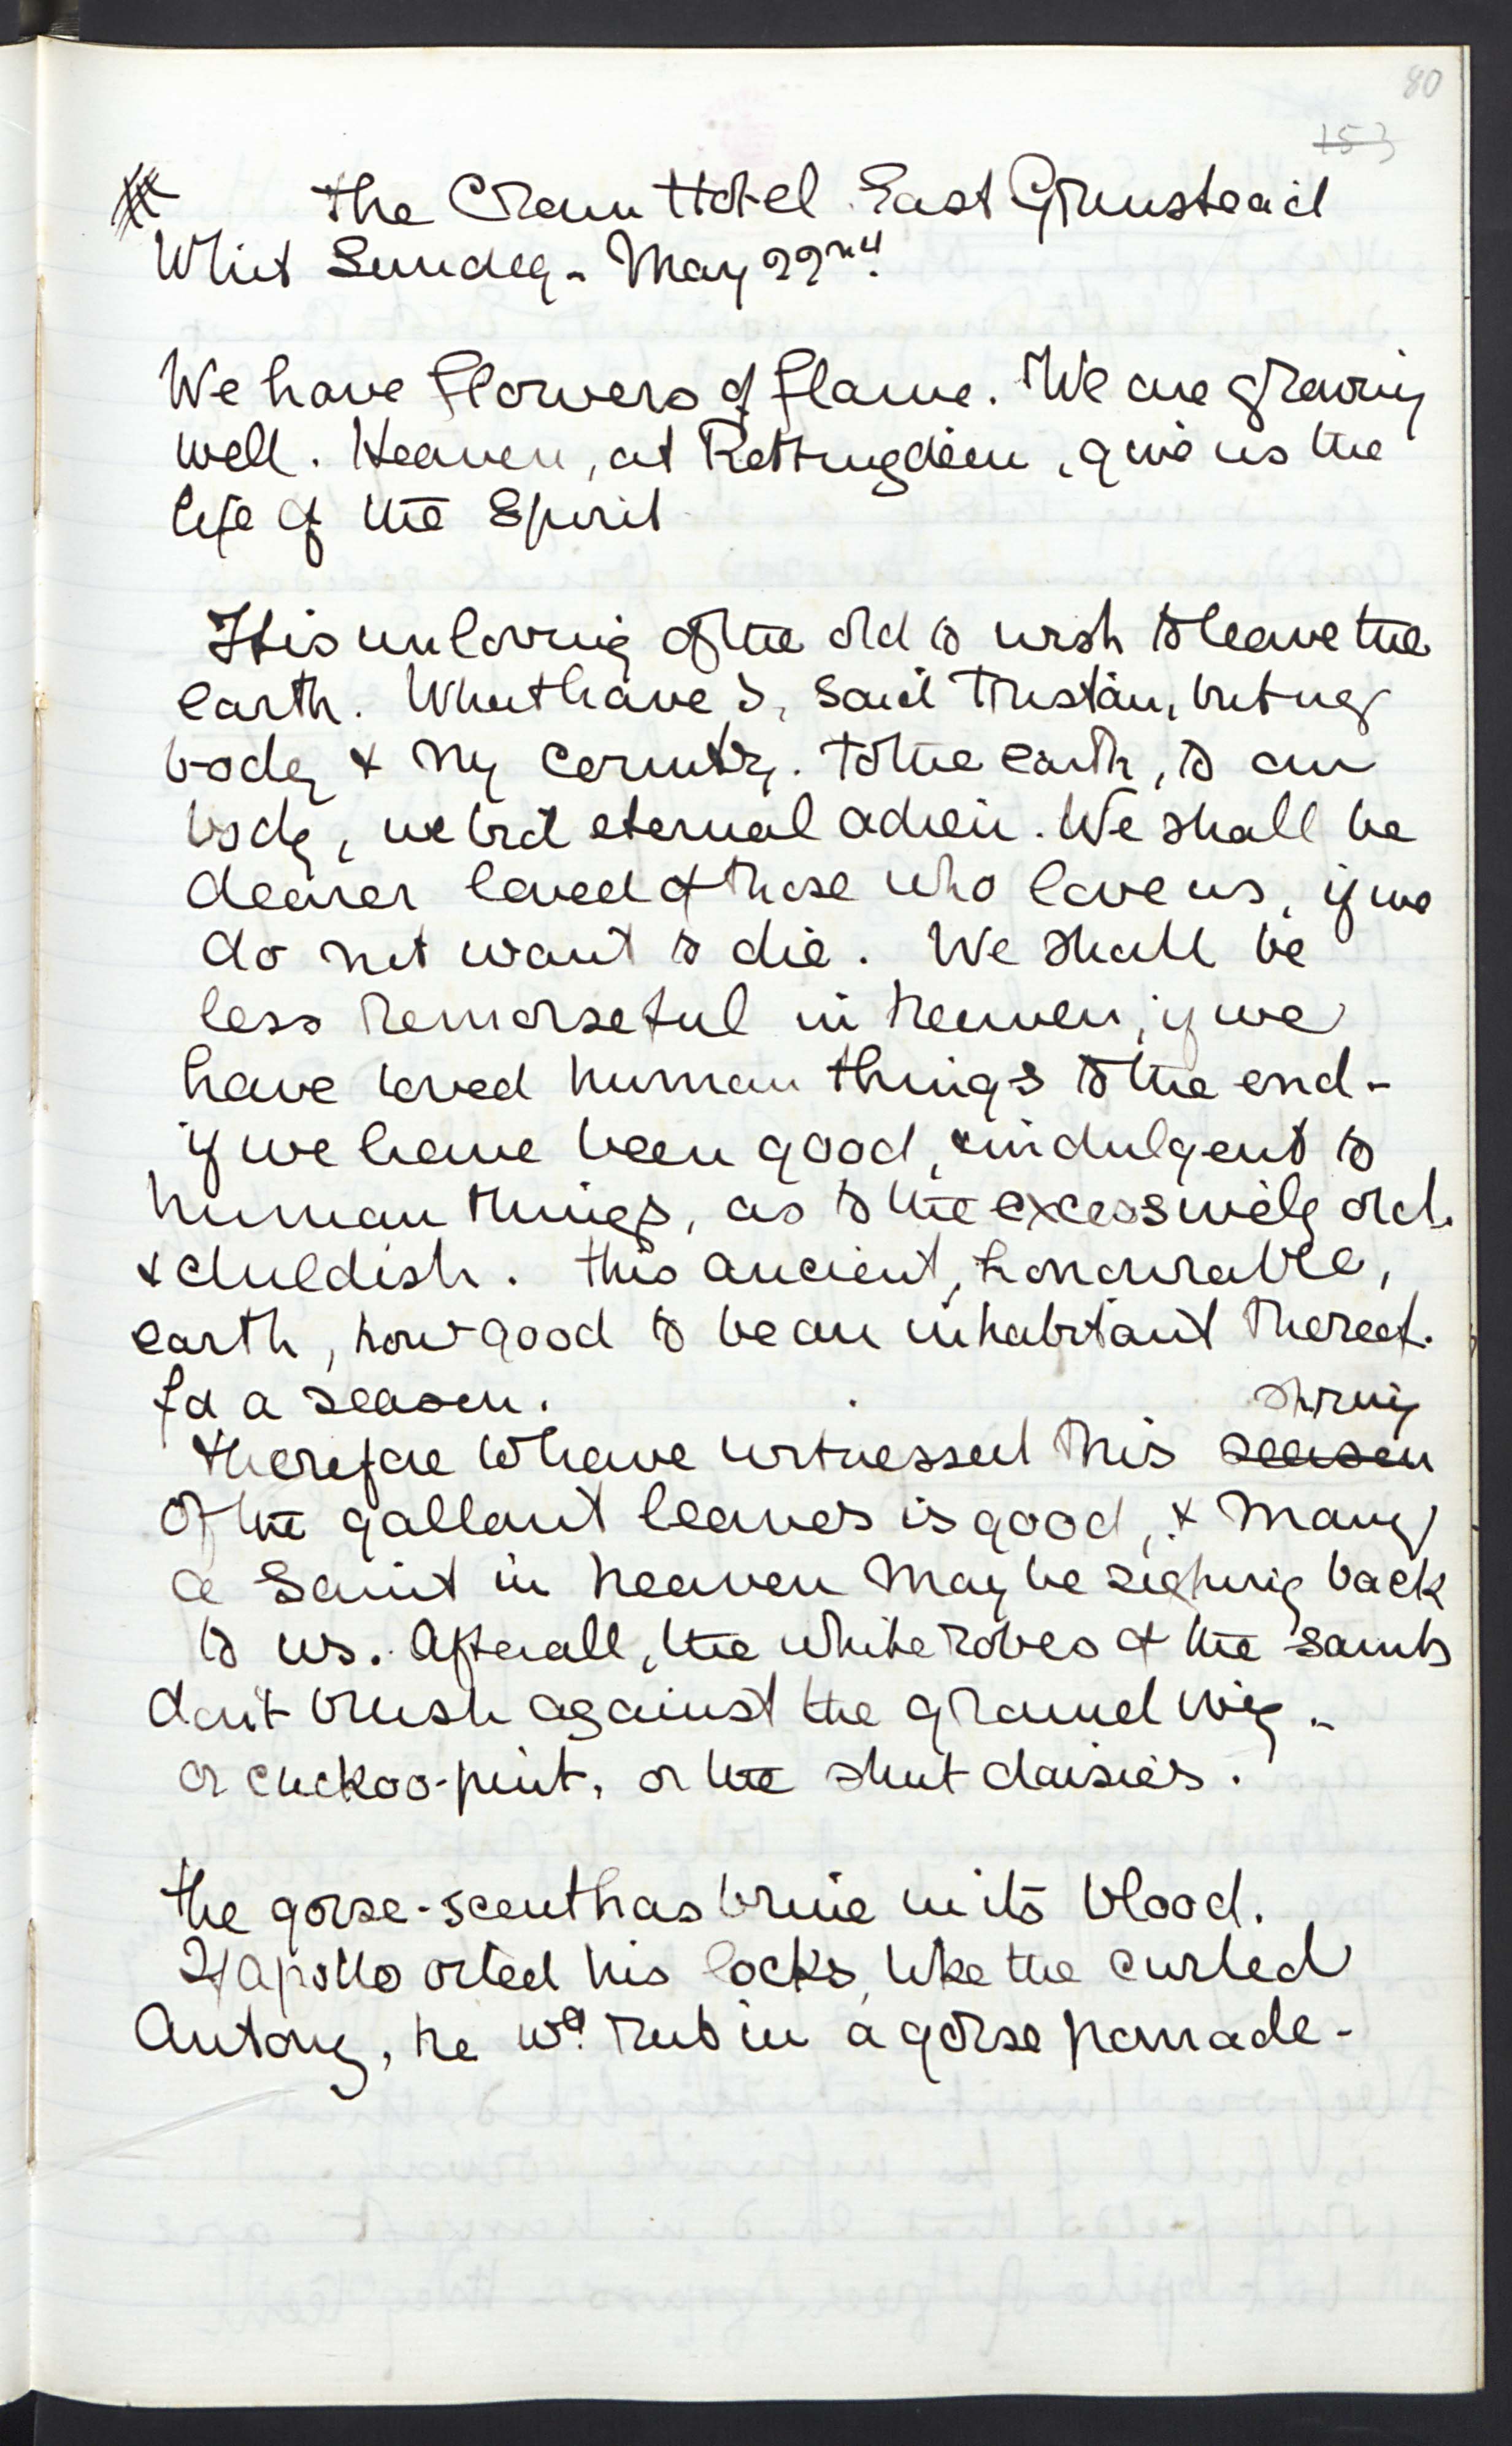 80
153
The Crown Hotel East Grinstead
Whit Sunday - May 22nd
We have flowers of flame. We are growing
well. Heaven, at Rottingdean, give us the
life of the Spirit
It is unloving of the old to wish to leave the
earth. What have I, said Tristan, but my
body & my country. To the earth, to our
body, we bid eternal adieu. We shall be
dearer loved of those who love us, if we
do not want to die. We shall be
less remorseful in heaven, if we
have loved human things to the end -
if we have been good, & indulgent to
human things, as to the excessively old
& childish. This ancient, honourable,
earth, how good to be an inhabitant thereof
for a season.
spring
Therefore to have witnessed this season
of the gallant leaves is good, & many
a Saint in heaven may be sighing back
to us. After all, the white robes of the saints
don't brush against the ground ivy -
or cuckoo-pint, or the shut daisies.
The gorse-scent has brine in its blood.
If Apollo oiled his locks, like the curled
Antony, he wd. rub in a gorse pomade -